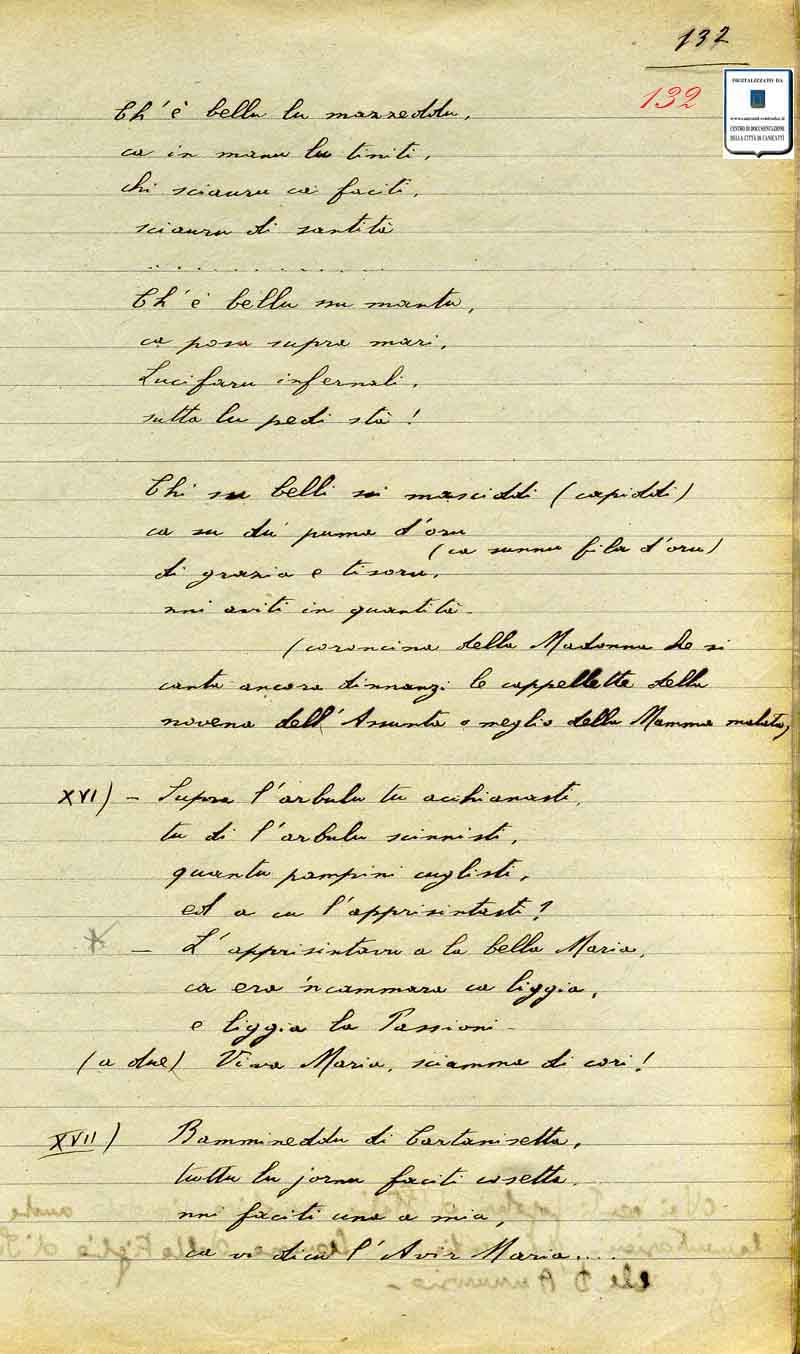 132
132
DIGITALIZZATO DA
CENTRO DI DOCUMENTAZIONE
DELLA CITTÀ DI CANICATTÌ
Ch'è bellu lu mazzeddu,
ca in manu lu tiniti,
chi sciauru ca faciti,
sciauru di santità
. . . . . . . . . . . . .
Ch'è bellu su mantu,
ca posa supra mari,
Lucifaru infernali,
sutta lu pedi stà!
Chi su belli si masciddi (capiddi)
ca su du' puma d'oru
(ca sunnu fila d'oru)
di grazia e tisoru,
nni aviti in quantità -
(coroncina della Madonna che si
canta ancora dinnanzi le cappellette della
novena dell'Assunta o meglio della Mamma malata)
XVI) - Supra l'arbulu tu acchianasti,
tu di l'arbulu scinnisti,
quantu pampini cuglisti,
ed a cu l'apprisintasti?
- L'apprisintavu a la bella Maria,
ca era 'ncammara ca liggia,
e liggia la Passioni -
(a due) Viva Maria, sciamma di cori!
XVII) Bammineddu di Cartanisetta,
tuttu lu jornu faciti cosetta
nni faciti una a mia,
ca vi dicu l'Avir Maria....